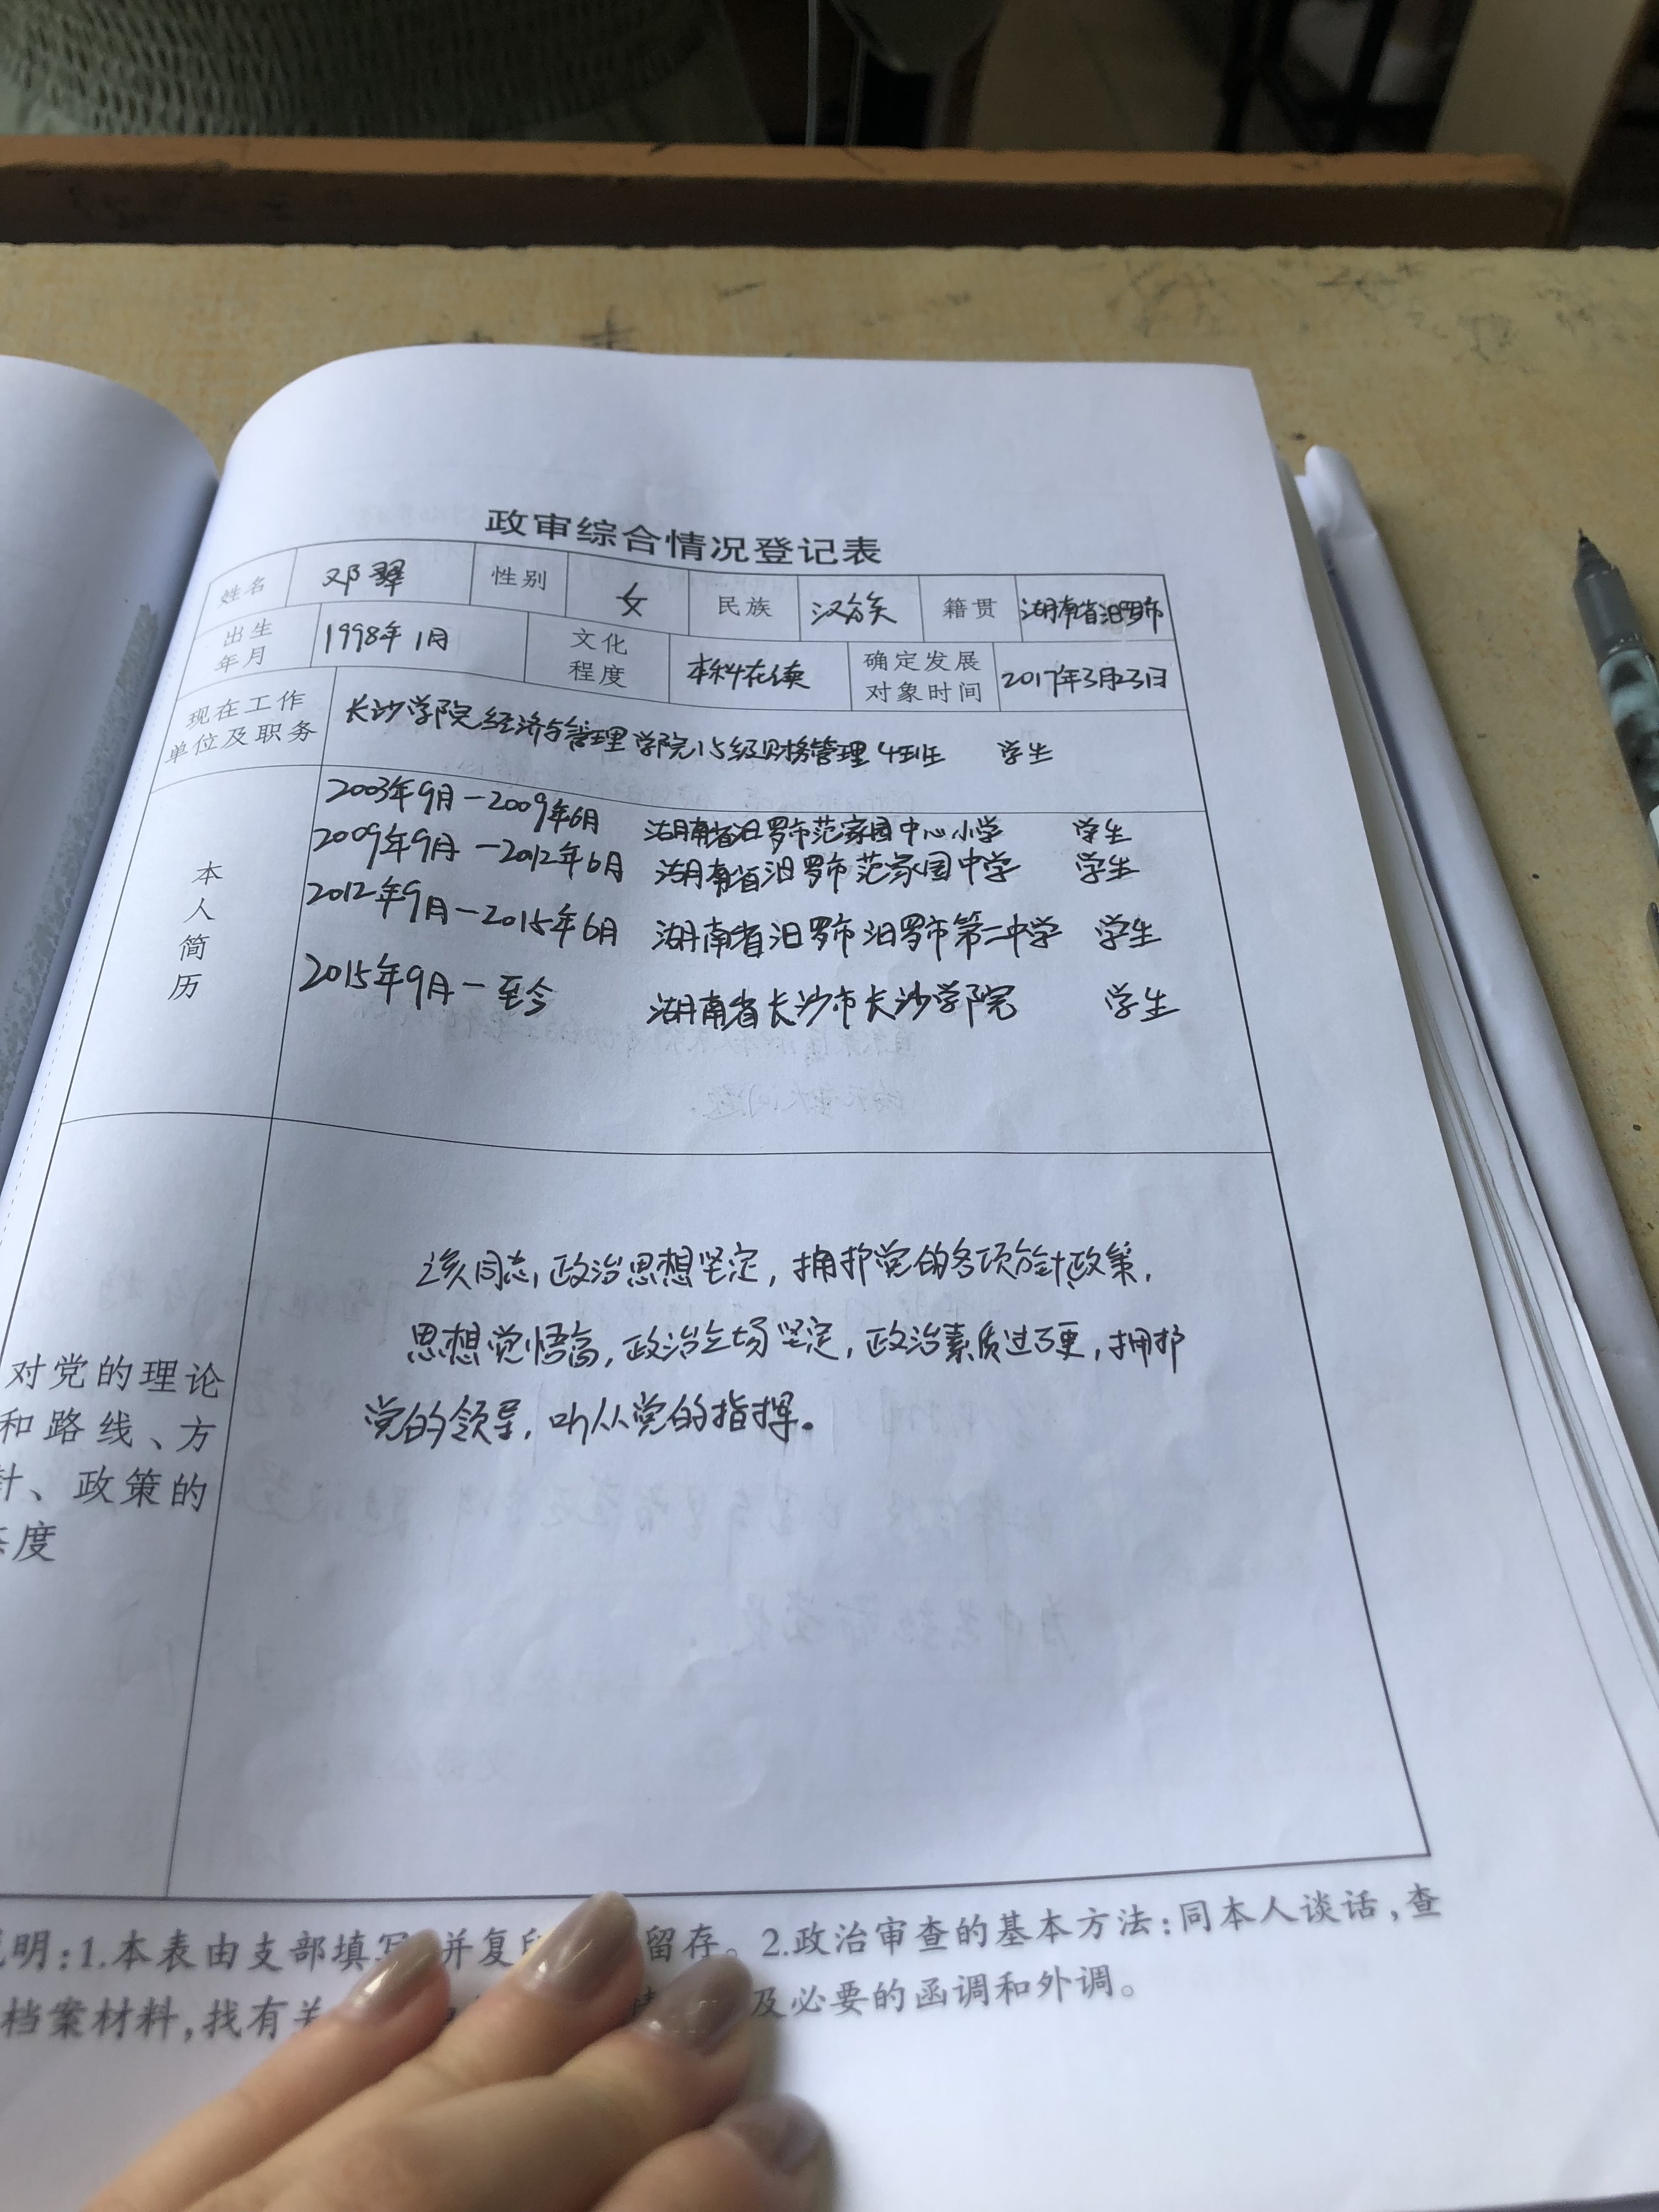 政审综合情况登记表
姓名 邓翠 性别 女 民族 汉族 籍贯 湖南省汨罗市
出生年月 1998年1月 文化程度 本科在读 确定发展对象时间 2017年3月23日
现在工作单位及职务 长沙学院经济与管理学院15级财务管理4班班 学生
本人简历
2003年9月-2009年6月 湖南省汨罗市范家园中心小学 学生
2009年9月-2012年6月 湖南省汨罗市范家园中学 学生
2012年9月-2015年6月 湖南省汨罗市汨罗市第二中学 学生
2015年9月-至今 湖南省长沙市长沙学院 学生
该同志,政治思想坚定,拥护党的各项方针政策,
思想觉悟高,政治立场坚定,政治素质过硬,拥护
党的领导,听从党的指挥。
对党的理论
和路线、方
针、政策的
态度
说明:1.本表由支部填写 并复印 留存。2.政治审查的基本方法:同本人谈话,查
档案材料,找有关 及必要的函调和外调。